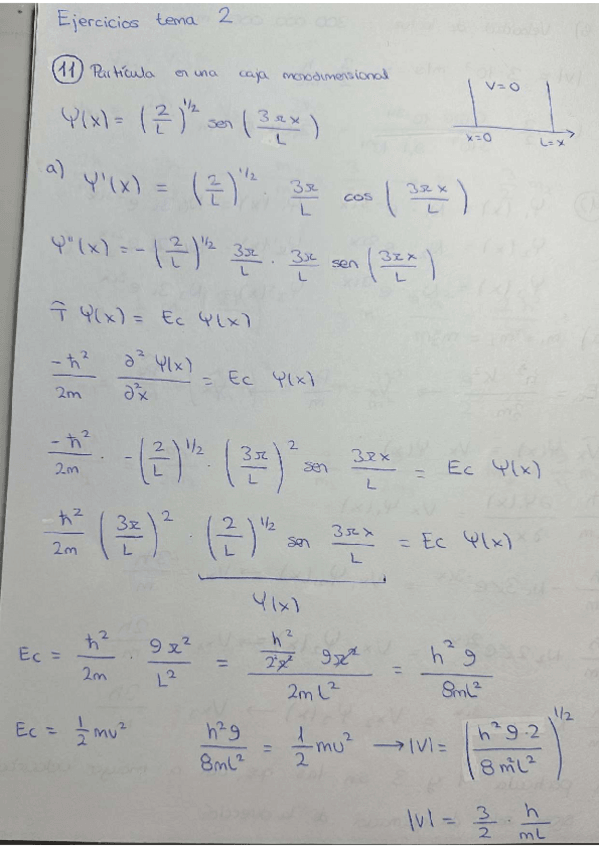 Ejercicios tema 2
⑪ Partícula en una caja monodimensional
V=0
x=0 L=x
Ψ(x) = (2/L)^1/2 sen (3πx/L)
a) Ψ'(x) = (2/L)^1/2 · 3π/L cos (3πx/L)
Ψ''(x) = -(2/L)^1/2 3π/L · 3π/L sen (3πx/L)
T̂ Ψ(x) = Ec Ψ(x)
-ħ²/2m ∂²Ψ(x)/∂²x = Ec Ψ(x)
-ħ²/2m · -(2/L)^1/2 · (3π/L)² sen 3πx/L = Ec Ψ(x)
ħ²/2m (3π/L)² · (2/L)^1/2 sen 3πx/L = Ec Ψ(x)
Ψ(x)
Ec = ħ²/2m · 9π²/L² = h²/2²π² 9π²/2mL² = h²9/8mL²
Ec = 1/2 mv² h²9/8mL² = 1/2 mv² → |v| = (h²9·2/8m²L²)^1/2
|v| = 3/2 · h/mL